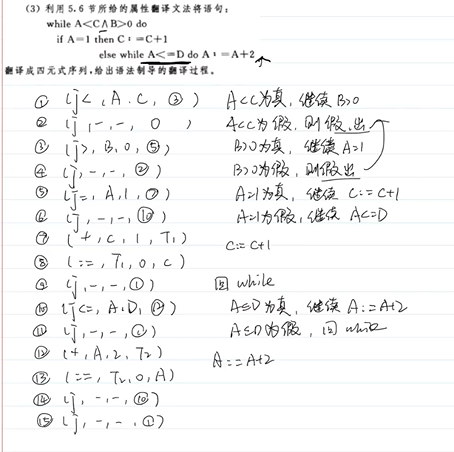 (3) 利用 5.6 节所给的属性翻译文法将语句:
while A<C∧B>0 do
if A=1 then C:=C+1
else while A<=D do A:=A+2
翻译成四元式序列,给出语法制导的翻译过程。
① (j<, A, C, ③) A<C为真, 继续 B>0
② (j, -, -, 0 ) A<C为假, 则假出
③ (j>, B, 0, ⑤) B>0为真, 继续 A=1
④ (j, -, -, ②) B>0为假, 则假出
⑤ (j=, A, 1, ⑦) A=1为真, 继续 C:=C+1
⑥ (j, -, -, ⑩) A=1为假, 继续 A<=D
⑦ (+, C, 1, T₁) C:=C+1
⑧ (:=, T₁, 0, C)
⑨ (j, -, -, ①) 回 while
⑩ (j<=, A, D, ⑫) A≤D为真, 继续 A:=A+2
⑪ (j, -, -, ①) A≤D为假, 回 while
⑫ (+, A, 2, T₂) A:=A+2
⑬ (:=, T₂, 0, A)
⑭ (j, -, -, ⑩)
⑮ (j, -, -, ①)